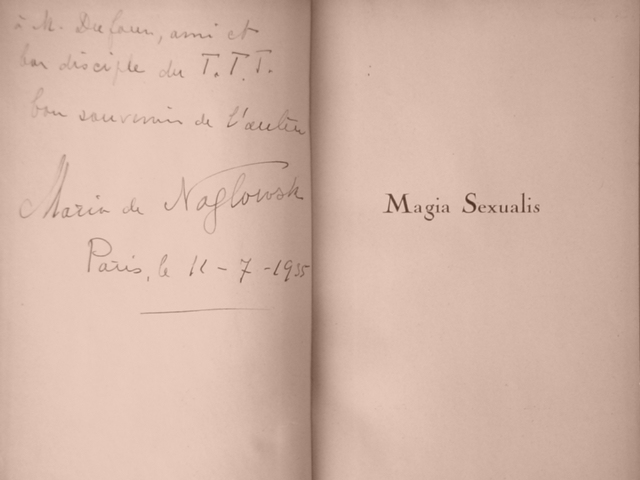 à M. Dufour, ami et
bon disciple du T.T.T.
bon souvenir de l'auteur
Maria de Naglowska
Paris, le 11-7-1935
Magia Sexualis